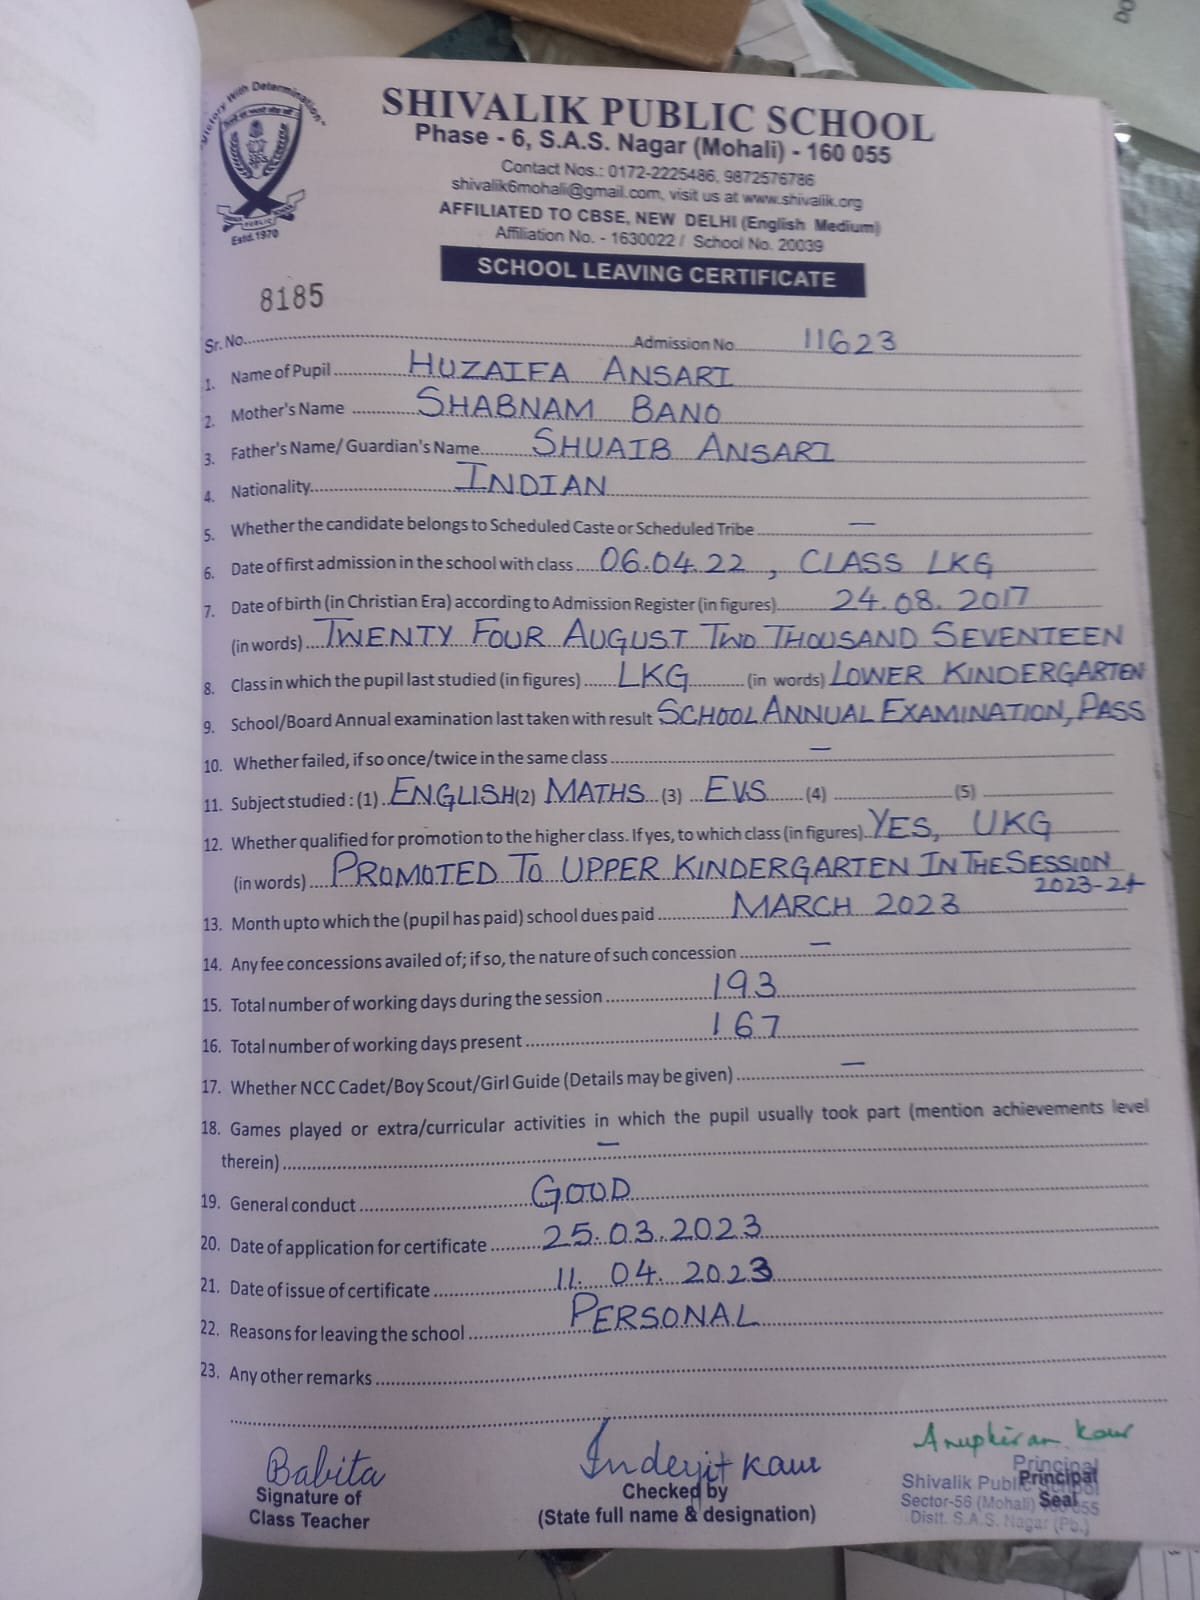 "Victory With Determination"
PUBLIC
Estd.1970
SHIVALIK PUBLIC SCHOOL
Phase - 6, S.A.S. Nagar (Mohali) - 160 055
Contact Nos.: 0172-2225486, 9872576786
shivalik6mohali@gmail.com, visit us at www.shivalik.org
AFFILIATED TO CBSE, NEW DELHI (English Medium)
Affiliation No. - 1630022 / School No. 20039
SCHOOL LEAVING CERTIFICATE
8185
Sr. No. Admission No. 11623
1. Name of Pupil HUZAIFA ANSARI
2. Mother's Name SHABNAM BANO
3. Father's Name/ Guardian's Name SHUAIB ANSARI
4. Nationality INDIAN
5. Whether the candidate belongs to Scheduled Caste or Scheduled Tribe —
6. Date of first admission in the school with class 06.04.22, CLASS LKG
7. Date of birth (in Christian Era) according to Admission Register (in figures) 24.08.2017
(in words) TWENTY FOUR AUGUST TWO THOUSAND SEVENTEEN
8. Class in which the pupil last studied (in figures) LKG (in words) LOWER KINDERGARTEN
9. School/Board Annual examination last taken with result SCHOOL ANNUAL EXAMINATION, PASS
10. Whether failed, if so once/twice in the same class —
11. Subject studied : (1) ENGLISH (2) MATHS (3) EVS (4) (5)
12. Whether qualified for promotion to the higher class. If yes, to which class (in figures) YES, UKG
(in words) PROMOTED TO UPPER KINDERGARTEN IN THE SESSION
2023-24
13. Month upto which the (pupil has paid) school dues paid MARCH 2023
14. Any fee concessions availed of; if so, the nature of such concession —
15. Total number of working days during the session 193
16. Total number of working days present 167
17. Whether NCC Cadet/Boy Scout/Girl Guide (Details may be given) —
18. Games played or extra/curricular activities in which the pupil usually took part (mention achievements level
therein) —
19. General conduct GOOD
20. Date of application for certificate 25.03.2023
21. Date of issue of certificate 11.04.2023
22. Reasons for leaving the school PERSONAL
23. Any other remarks
Babita
Signature of
Class Teacher
Inderjit Kaur
Checked by
(State full name & designation)
Anupkiran Kaur
Principal
Shivalik Public School
Principal
Sector-56 (Mohali) 160055
Seal
Distt. S.A.S. Nagar (Pb.)